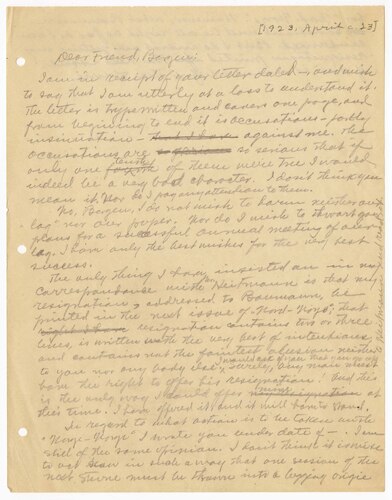 [1923, April c. 23]
Dear Friend Bergen:
I am in receipt of your letter dated — and wish
to say that I am utterly at a loss to understand it.
The letter is typewritten and covers one page, and
from beginning to end it is accusations — partly
insinuations — against me. The
accusations are so serious that if
only one tenth of them were true I would
indeed be a very bad character. I don't think you
mean it. Nor do I pay any attention to them.
No, Bergen, I do not wish to harm neither our
lag nor our paper. Nor do I wish to thwart your
plans for a successful annual meeting of our
lag. I have only the best wishes for the very best
success.
The only thing I have insisted on in my
correspondence with is that my
resignation, addressed to Baumann, be
printed in the next issue of Nord-Norge, that
resignation contains two or three
lines, is written with the very best of intentions,
and contains not the faintest allusion neither
to you nor any body else. Surely, any man must
have the right to offer his resignation! And this
is the only way I could offer mine at
this time. I have offered it, and it will have to stand.
In regard to what action is to be taken with
"Nord-Norge" I wrote you under date of — I am
still of the same opinion. I don't think it is wise
to act in such a way that one session of the
next Stevne must be thrown into a